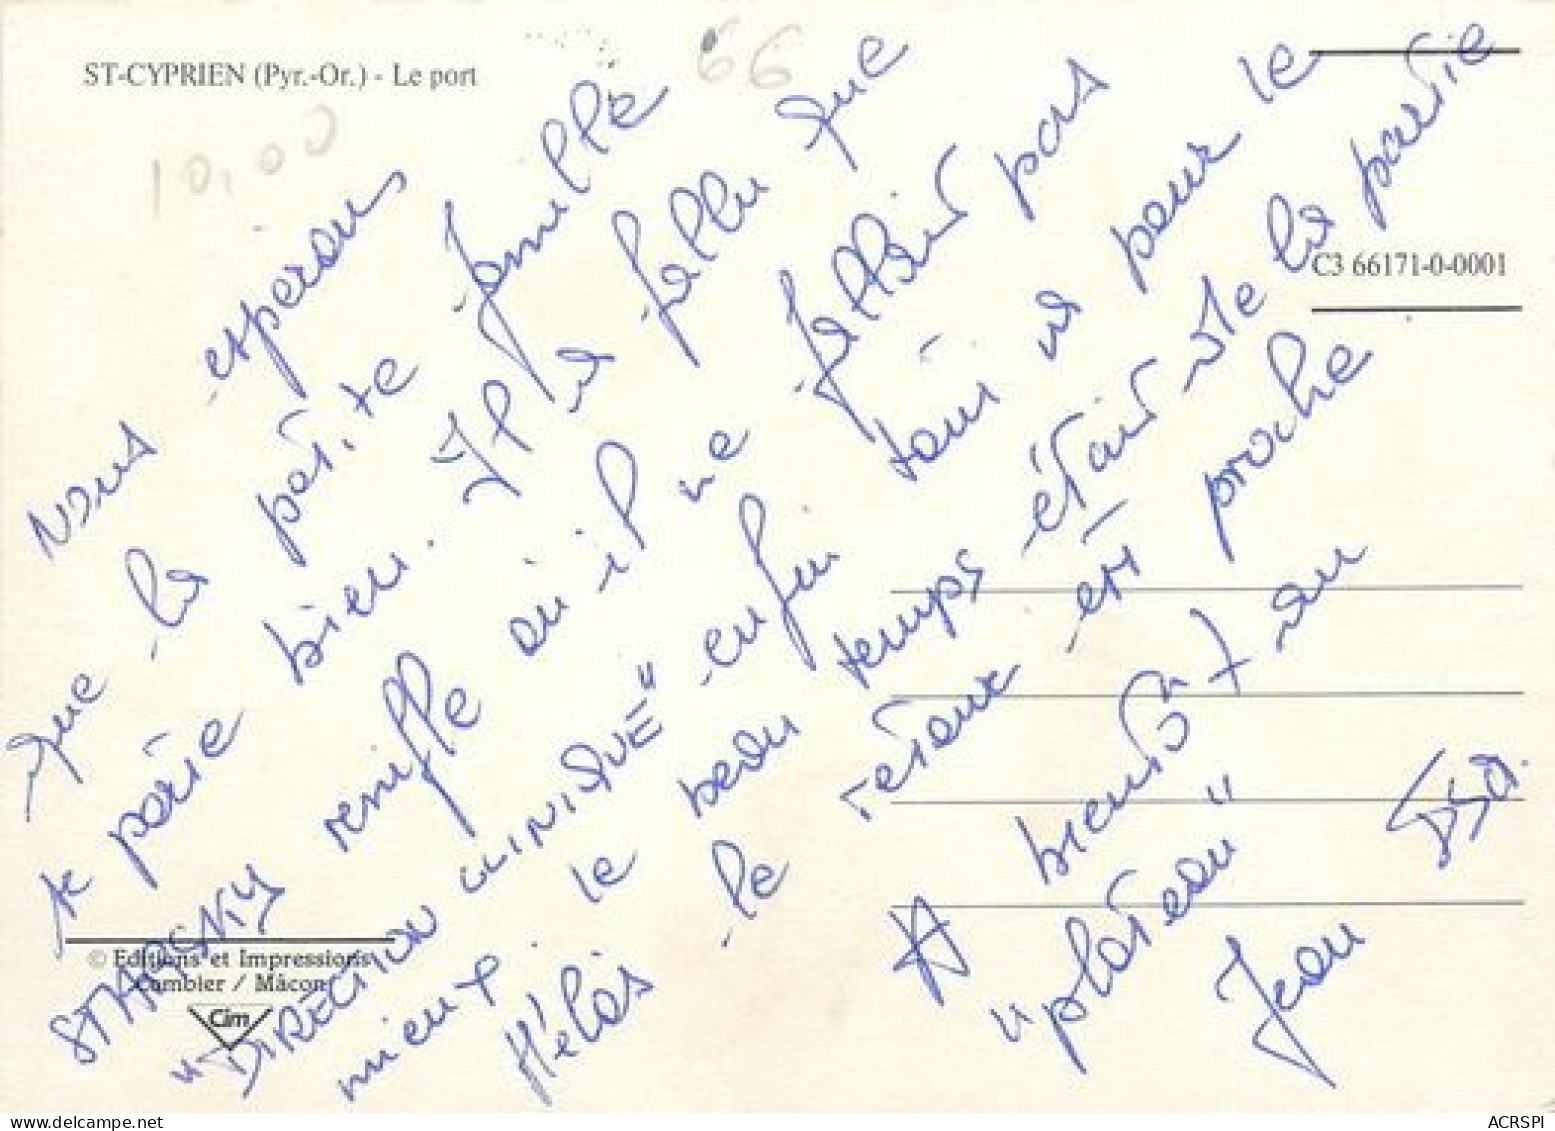 ST-CYPRIEN (Pyr.-Or.) - Le port
66
10,00
C3 66171-0-0001
Nous esperons
que la petite famille
se porte bien. Il a fallu que
STARSKY renifle ou il ne fallait pas
"DIRECTION CLINIQUE" enfin tout va pour le
mieux. le beau temps était de la partie
Hélas le retour est proche
A bientôt au
"plateau"
Jean
© Editions et Impressions
Combier / Mâcon
Cim
ACRSPI